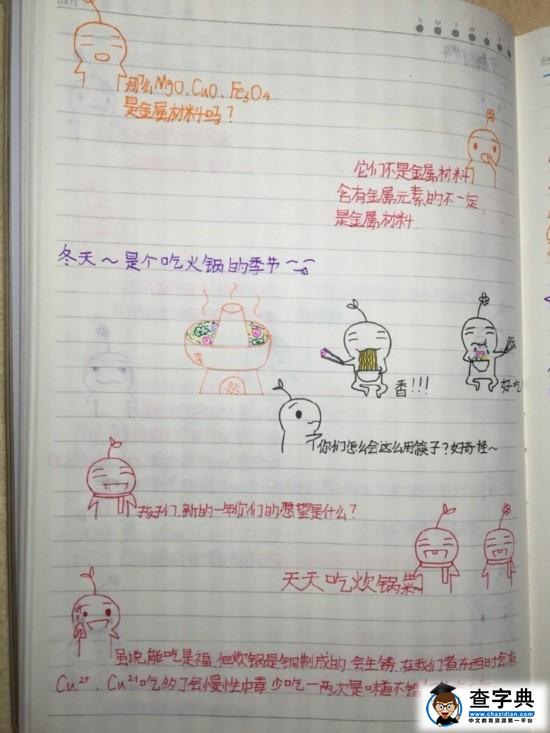 DATE
S M T W T F S
那么MgO、CuO、Fe3O4
是金属材料吗？
它们不是金属材料
含有金属元素的不一定
是金属材料
冬天～是个吃火锅的季节～
香!!!
好吃
你们怎么会这么用筷子？好奇怪～
孩子们、新的一年你们的愿望是什么？
天天吃炊锅菜
虽说能吃是福，但炊锅是铜制成的，会生锈，在我们煮东西时会有
Cu2+、Cu2+吃多了会慢性中毒 少吃一两次是味道不错
查字典
www.chazidian.com
中文教育资源第一平台